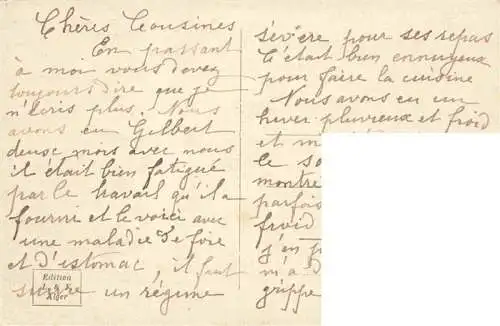 Chères Cousines
En passant
à moi vous devez
toujours dire que je
n'ecris plus. Nous
avons eu Gilbert
deux mois avec nous
il était bien fatigué
par le travail qu'il a
fourni et le voici avec
une maladie de foie
et d'estomac, il faut
suivre un régime
Edition
Alger
sévère pour ses repas
C'était bien ennuyeux
pour faire la cuisine
Nous avons eu un
hiver pluvieux et froid
et m
le so
montré
parfois
froid
j'en p
m'a d
grippe